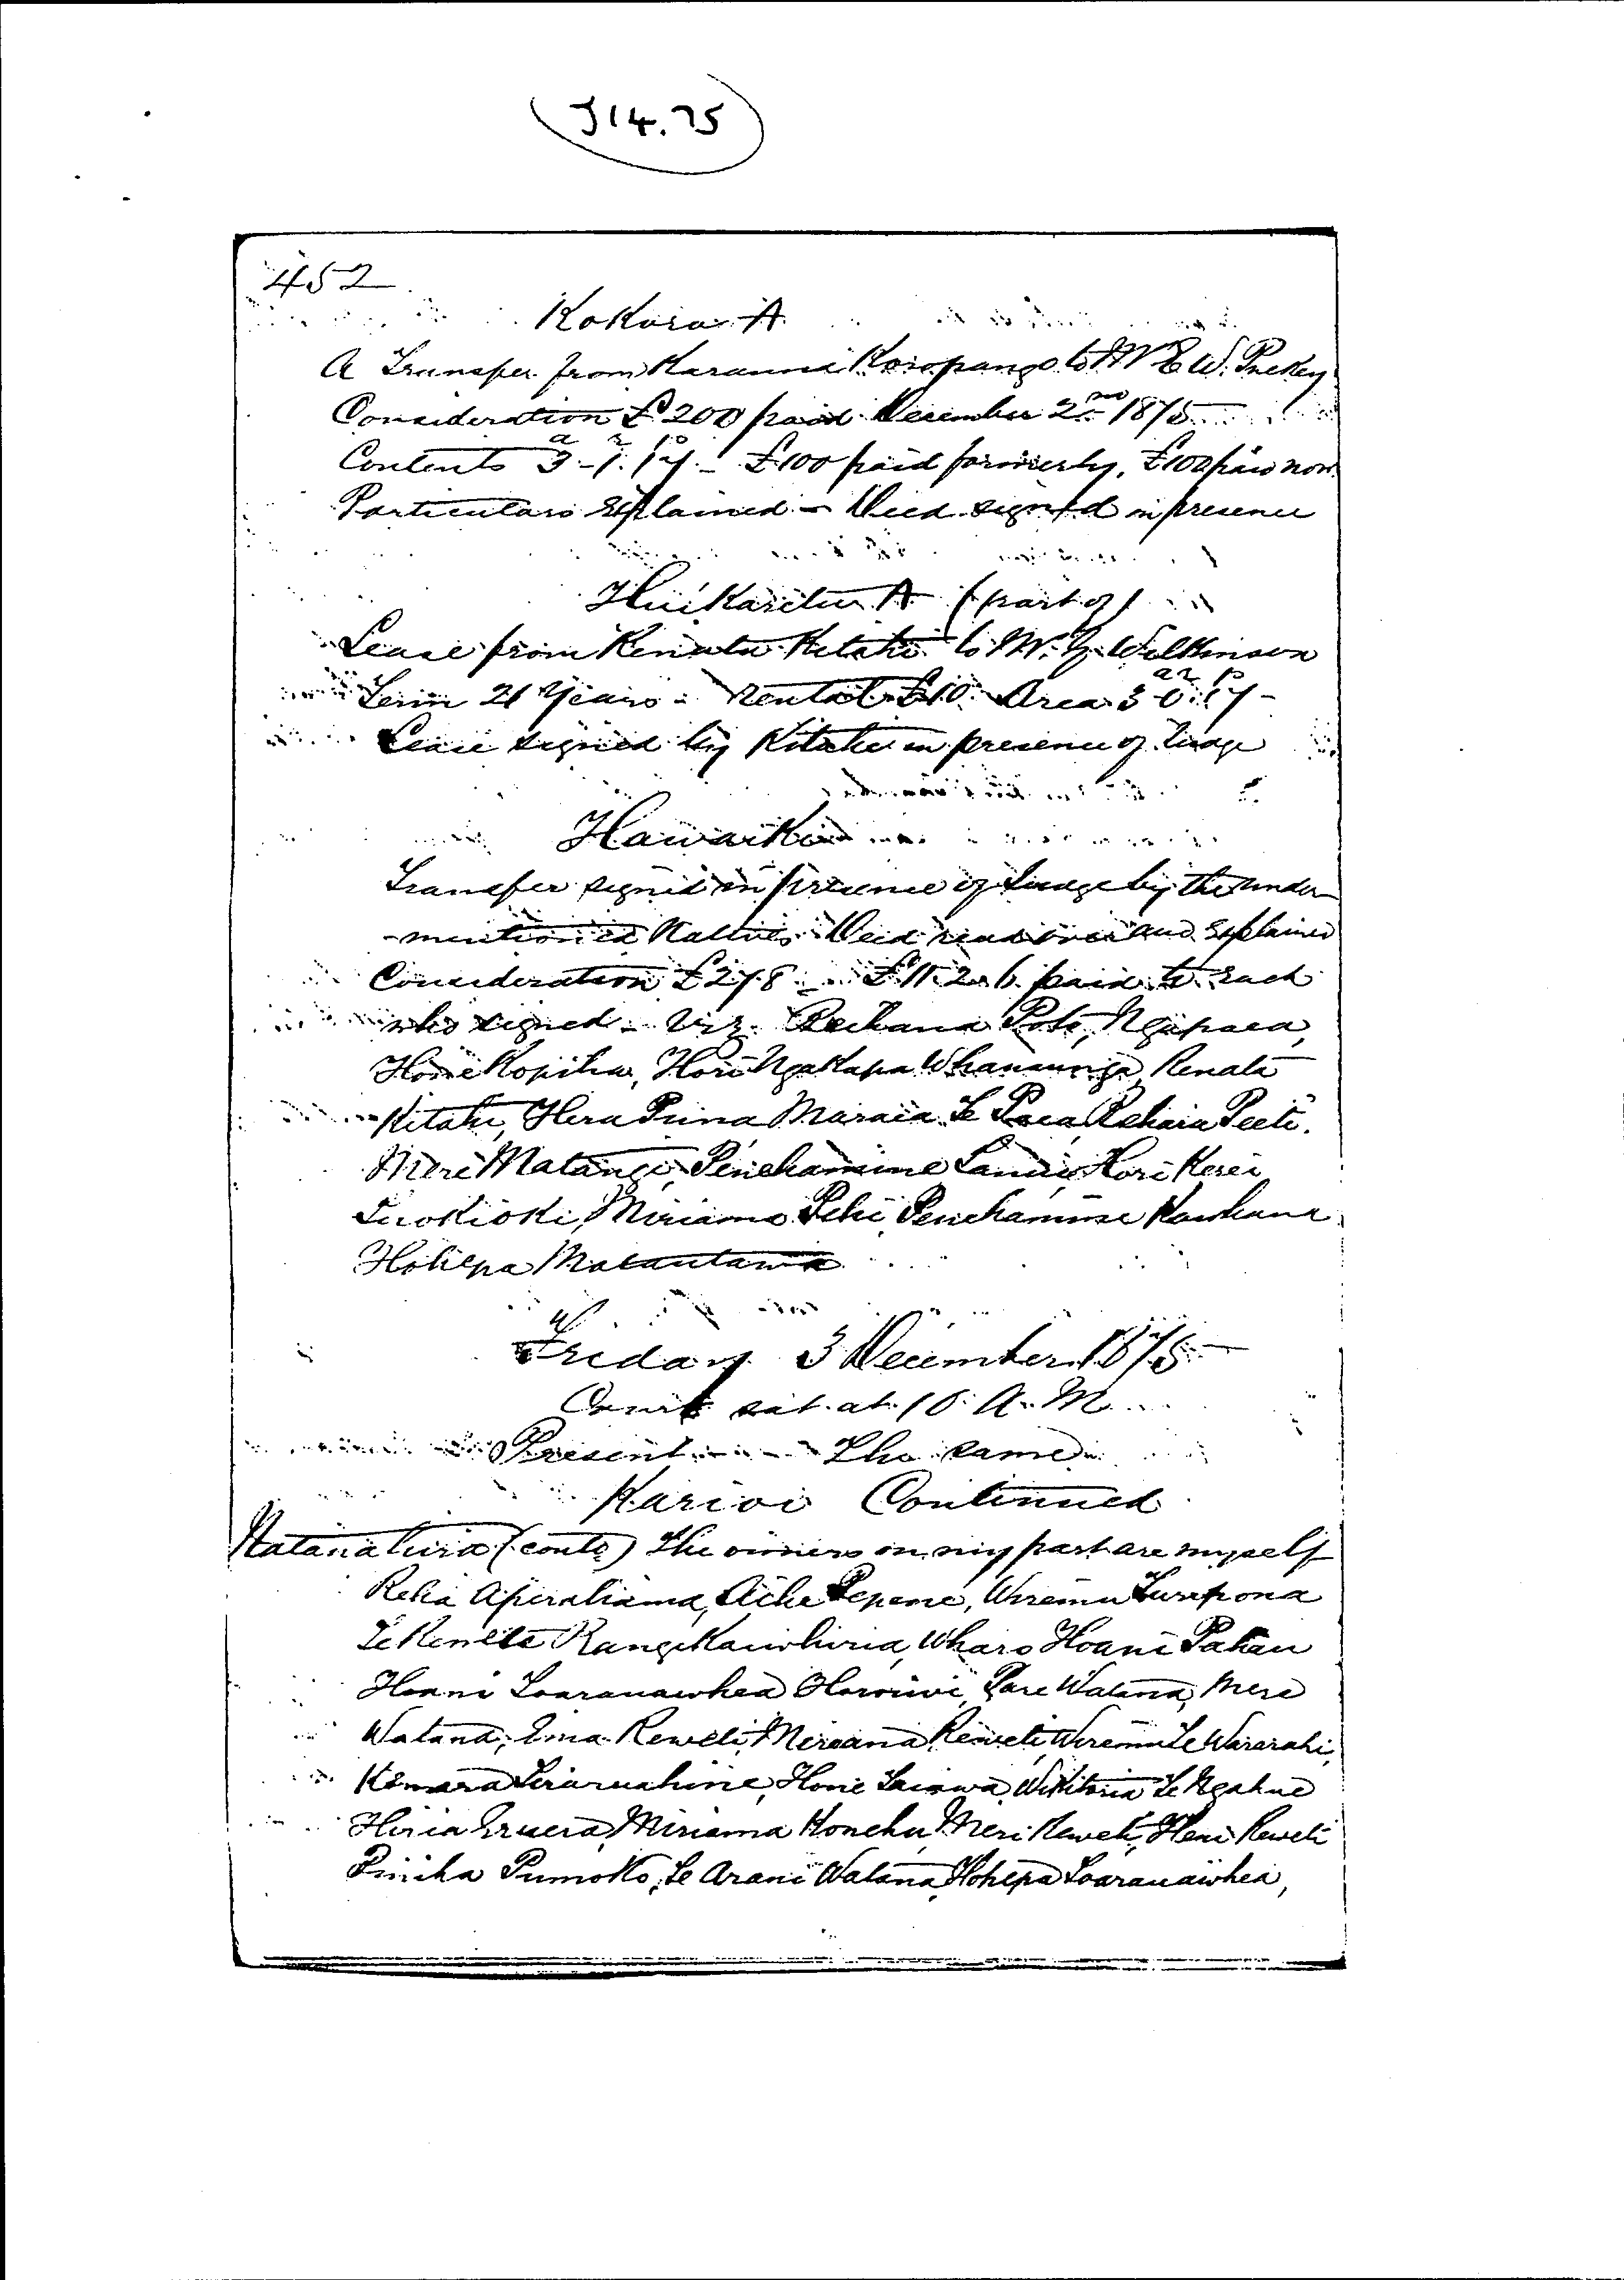 J14.75
452
Kokoro A
A Transfer from Karauna Koropango to Mr E W. Puckey
Consideration £200 paid December 2nd 1875
Contents 3 - 1. 17. - £100 paid formerly, £100 paid now.
Particulars Explained - Deed signed in presence
Huikaretu A (part of)
Lease from Renata Kitahi to Mr. Wilkinson
Term 21 Years - Rental £10. Area 3-0.17-
Lease signed by Kitahi in presence of Judge
Hawaiki
Transfer signed in presence of Judge by the under
-mentioned Natives. Deed read over and Explained
Consideration £278 £11.2.6. paid to each
who signed - Viz. Pote, Ngapaea,
Hone Kopiha, Hori Ngakapa Whanaunga, Renata
Kitahi, Hera Puna Maraea Te Paea, Rehaia Peeti.
Meri Matangi, Penehamine Hori Kerei
Tuokioki, Miriama Pehi, Penehamine Kawhana
Hohepa Matautama
Friday 3 December 1875
Court sat at 10 A.M.
Present - - - The same
Karioi Continued
Natanahira (contd) The owners on my part are myself
Reha Aperahama, Aihe Pepene, Wiremu Turipona
Te Kenete Rangikaiwhiria, Wharo Hoani Pakau
Hoani Toarauawhea Horowi, Pare Watana, Mere
Watana, Ema Reweti, Mereana Reweti, Wiremu Te Wararahi,
Kemara Teraruahine, Hone Taiawa, Wikitoria Te Ngahue
Hiria Eruera, Miriama Konehu, Meri Reweti, Heni Reweti
Piniha Pumoko, Te Arani Watana, Hohepa Toarauawhea,